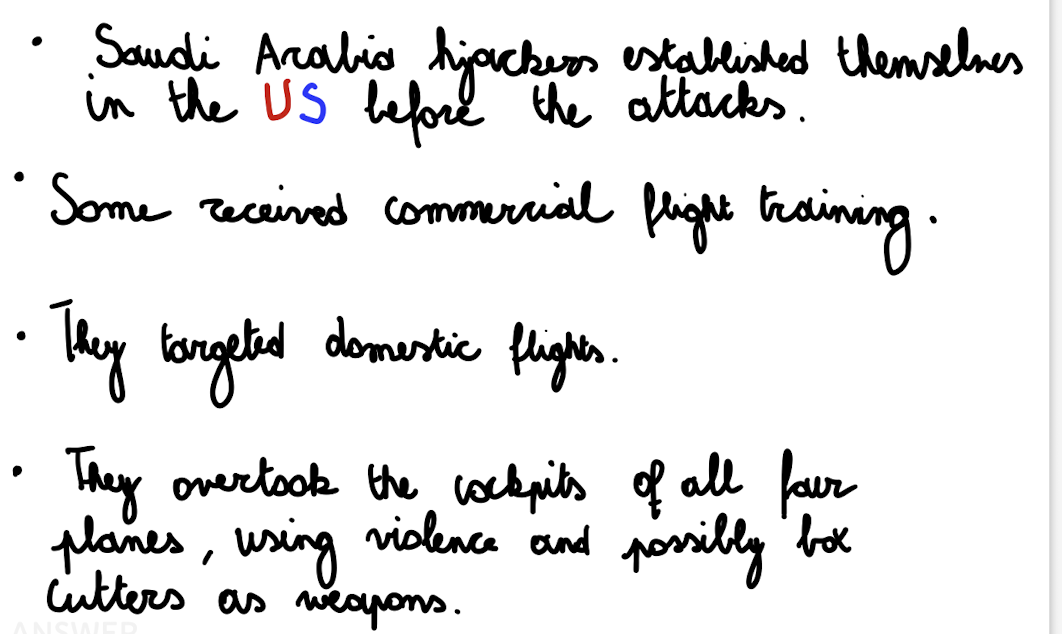 • Saudi Arabia hijackers established themselves
in the US before the attacks.
• Some received commercial flight training.
• They targeted domestic flights.
• They overtook the cockpits of all four
planes, using violence and possibly box
cutters as weapons.
ANSWER